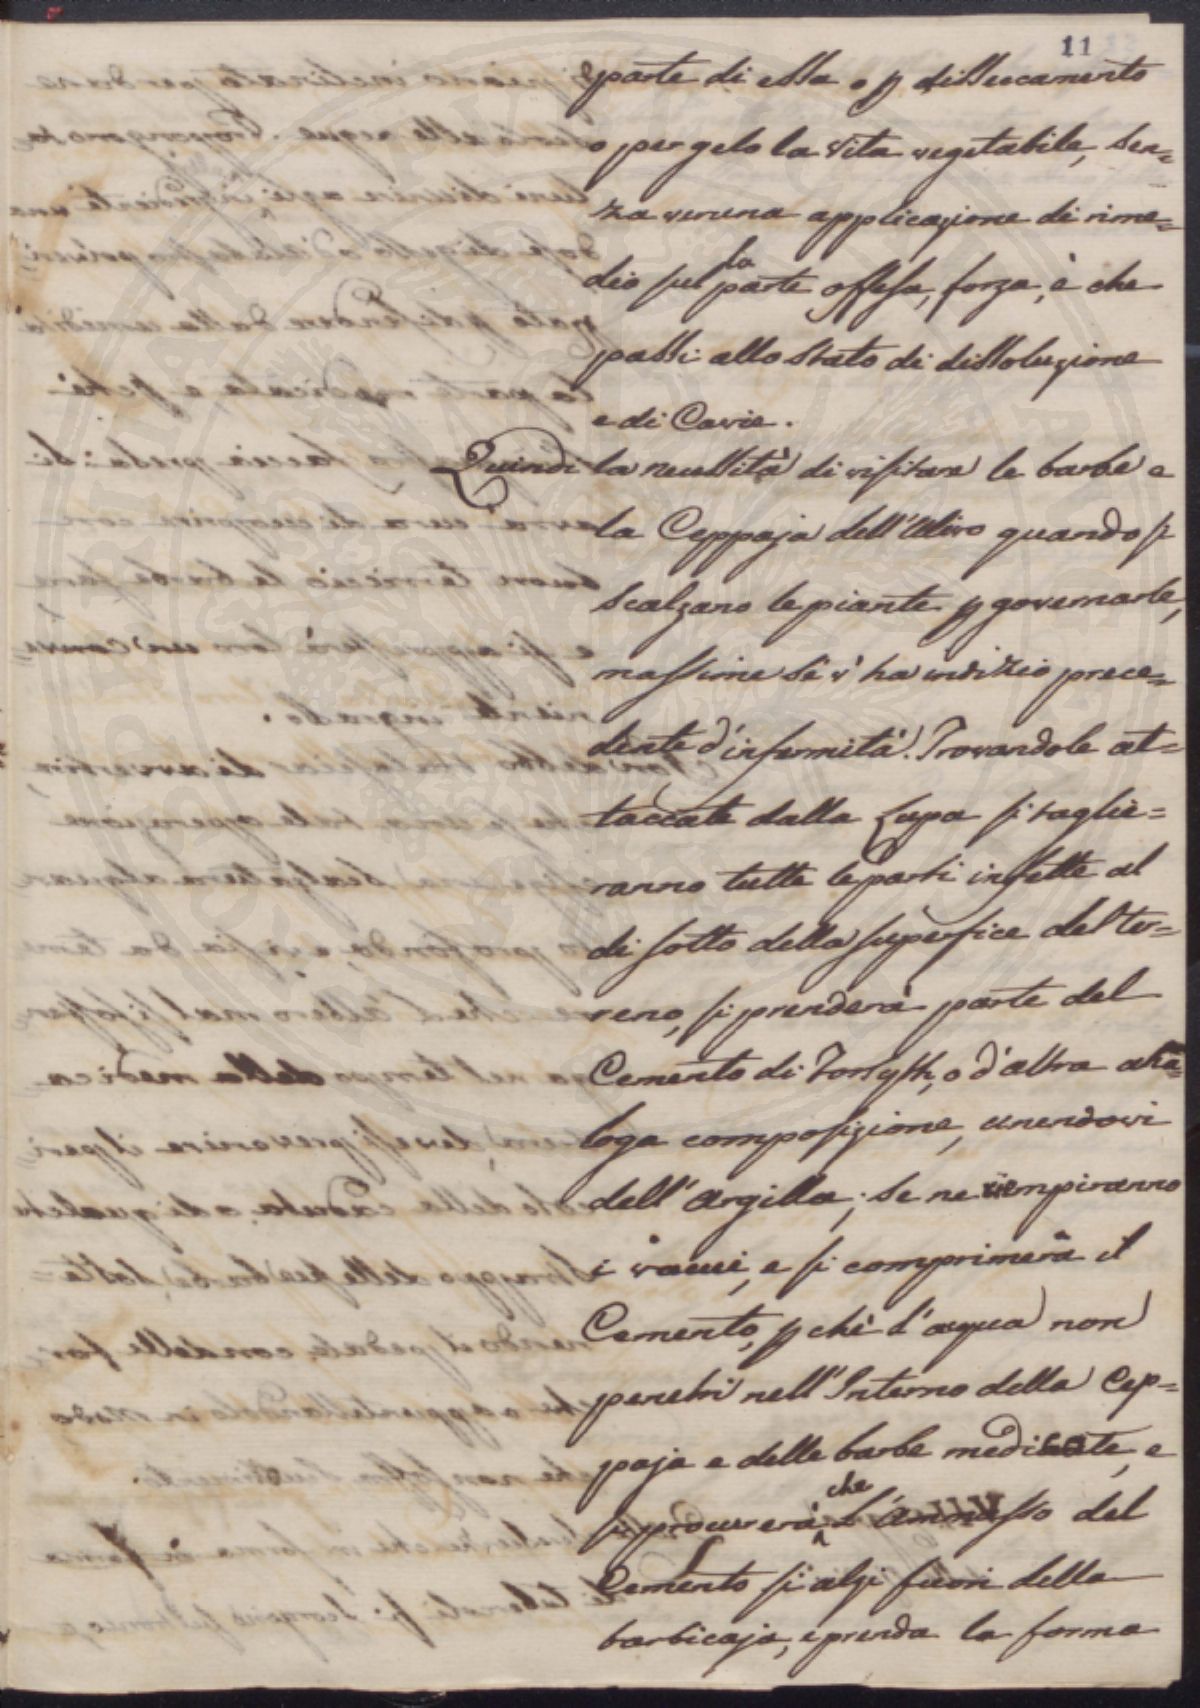 11
parte di essa o p dissecamento
o per gelo la vita vegetabile, sen=
za veruna applicazione di rime=
dio sulla parte offesa, forza, è che
passi allo stato di dissoluzione
e di Carie.
Quindi la necessità di visitare le barbe e
la Ceppaja dell'Ulivo quando si
scalzano le piante p governarle,
massime se v'ha indizio prece=
dente d'infermità. Trovandole at=
taccate dalla Lupa si taglie=
ranno tutte le parti infette al
di sotto della superfice del ter=
reno, si prenderà parte del
Cemento di Forsyth, o d'altra ana=
loga composizione, unendovi
dell'Argilla; se ne riempiranno
i vacui, e si comprimerà il
Cemento, p chè l'acqua non
penetri nell'Interno della Cep=
paja e delle barbe medicate, e
si procurerà che l'ammasso del
Cemento si alzi fuori della
barbicaja, e prenda la forma